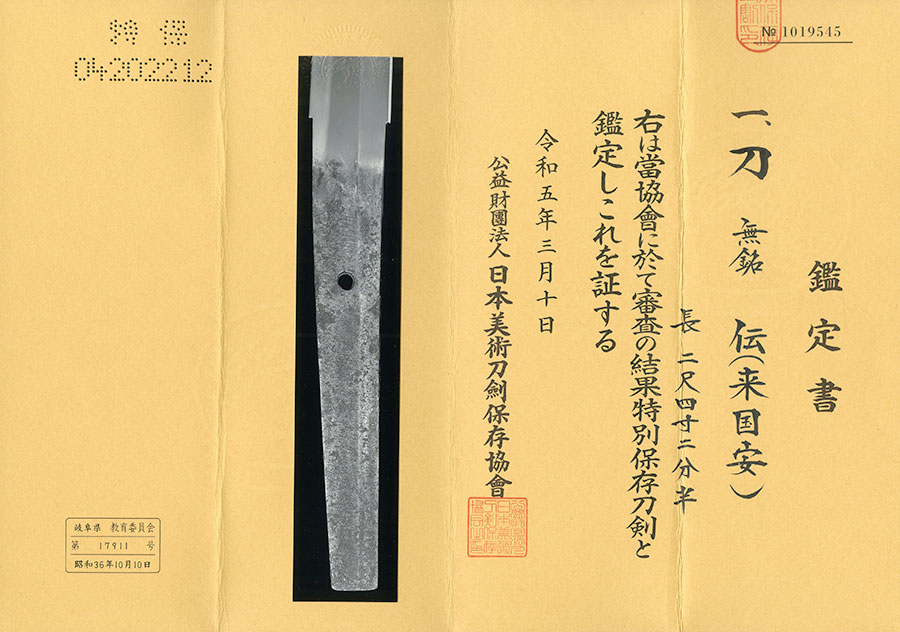 № 1019545
鑑定書
一、刀 無銘 伝(来国安)
長 二尺四寸二分半
右は當協會に於て審査の結果特別保存刀剣と
鑑定しこれを証する
令和五年三月十日
公益財團法人 日本美術刀劍保存協會
特保
04202212
岐阜県 教育委員会
第 17911 号
昭和36年10月10日